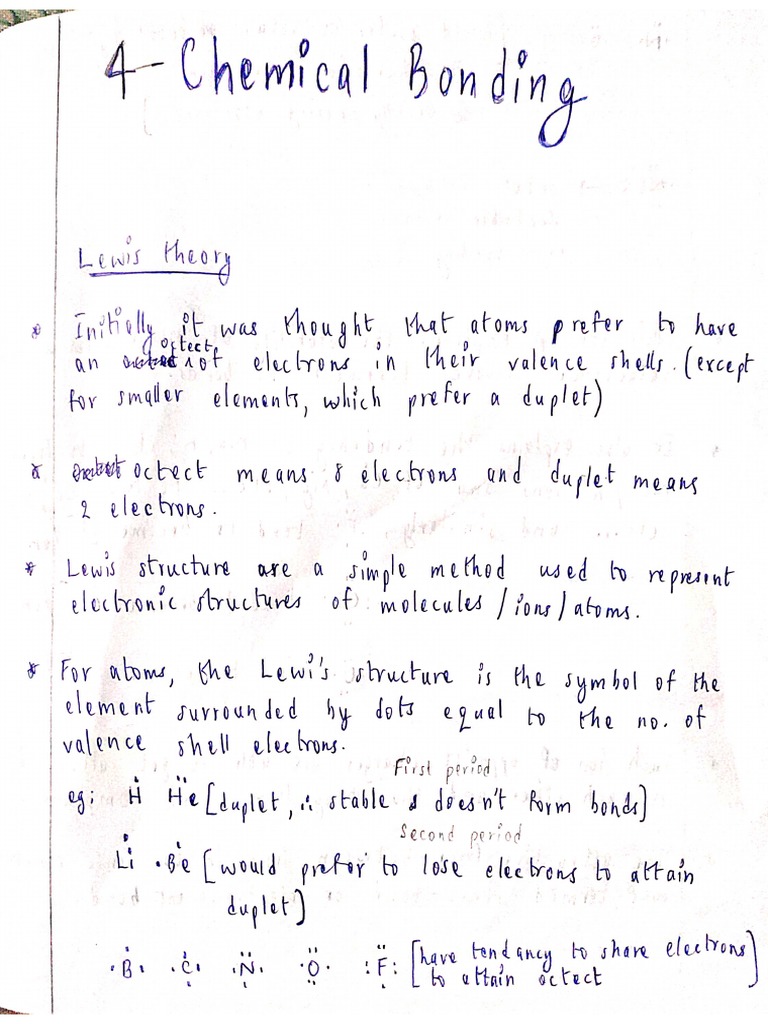 4- Chemical Bonding
Lewis theory
* Initially it was thought that atoms prefer to have
an octect of electrons in their valence shells. (except
for smaller elements, which prefer a duplet)
* octect means 8 electrons and duplet means
2 electrons.
* Lewis structure are a simple method used to represent
electronic structures of molecules/ions/atoms.
* For atoms, the Lewi's structure is the symbol of the
element surrounded by dots equal to the no. of
valence shell electrons.
First period
eg: H He [duplet, ∴ stable & doesn't form bonds]
Second period
Li Be [would prefer to lose electrons to attain
duplet]
B C N O F [have tendancy to share electrons]
to attain octect